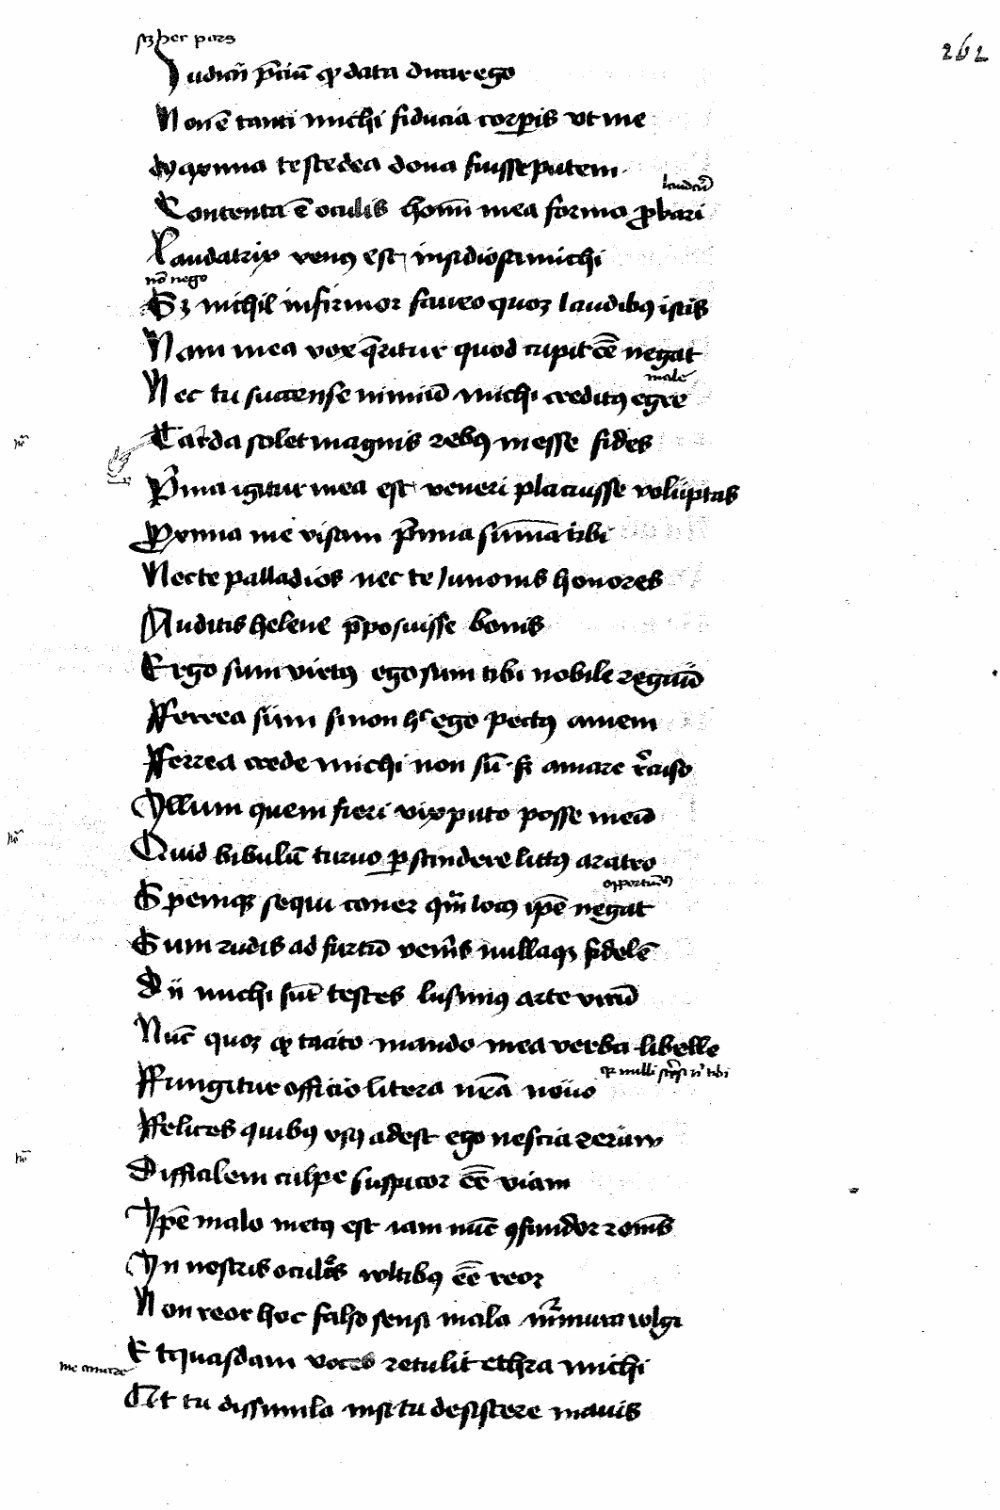 sz hec pars
262
Iudicii p̄ciū qͦ data dicar ego
Non ē tanti michi fiducia corꝑis vt me
Maxima teste dea dona fuisse putem
laudatū
Contenta ē oculis hoīm mea forma ꝓbari
Laudatrix venꝰ est insidiosa michi
nō nego
Sz nichil infirmor faueo quoqꝫ laudibꝰ istis
Nam mea vox q̄ritur quod cupit eē̄ negat
male
Nec tu succense nimiū michi creditꝰ egre
hō
Tarda solet magnis rebꝰ inesse fides
Pͥma igitur mea est veneri placuisse voluptas
Proxima me visam pͥma suīma tibi
Nec te palladios nec te Junonis honores
Auditis helene p̄posuisse bonis
Ergo sum virtꝰ ego sum tibi nobile regnū
Fferrea sim si non hͨ ego pectꝰ amem
Fferrea crede michi non sū sꝫ amare rͤcuso
Yllum quem fieri vix puto posse meū
hō
Quid bibulū curuo ꝓscindere littꝰ aratro
opportunꝰ
Spemqꝫ sequi coner qͣm locꝰ ip̄e negat
Sum rudis ad furtū veneris nullaqꝫ fidelē
Dii michi sūt testes lusimꝰ arte virū
Nūc quoqꝫ qͦ tacito mando mea verba libelle
qꝫ nulli scͥpsi nͥ tibi
Ffungitur officio litera nrā nouo
Ffelices quibꝰ vsꝰ adest ego nescia rerum
hō
Difficilem culpe suspicor eē̄ viam
Ip̄e malo metꝰ est iam nūc ꝯfundor et omīs
In nostris oculos vultibꝰ eē̄ reor
Non reor hoc falso sensi mala murmura wlgi
Et quasdam voces retulit ethra michi
me amare
At tu dissimula nisi tu desistere mauis